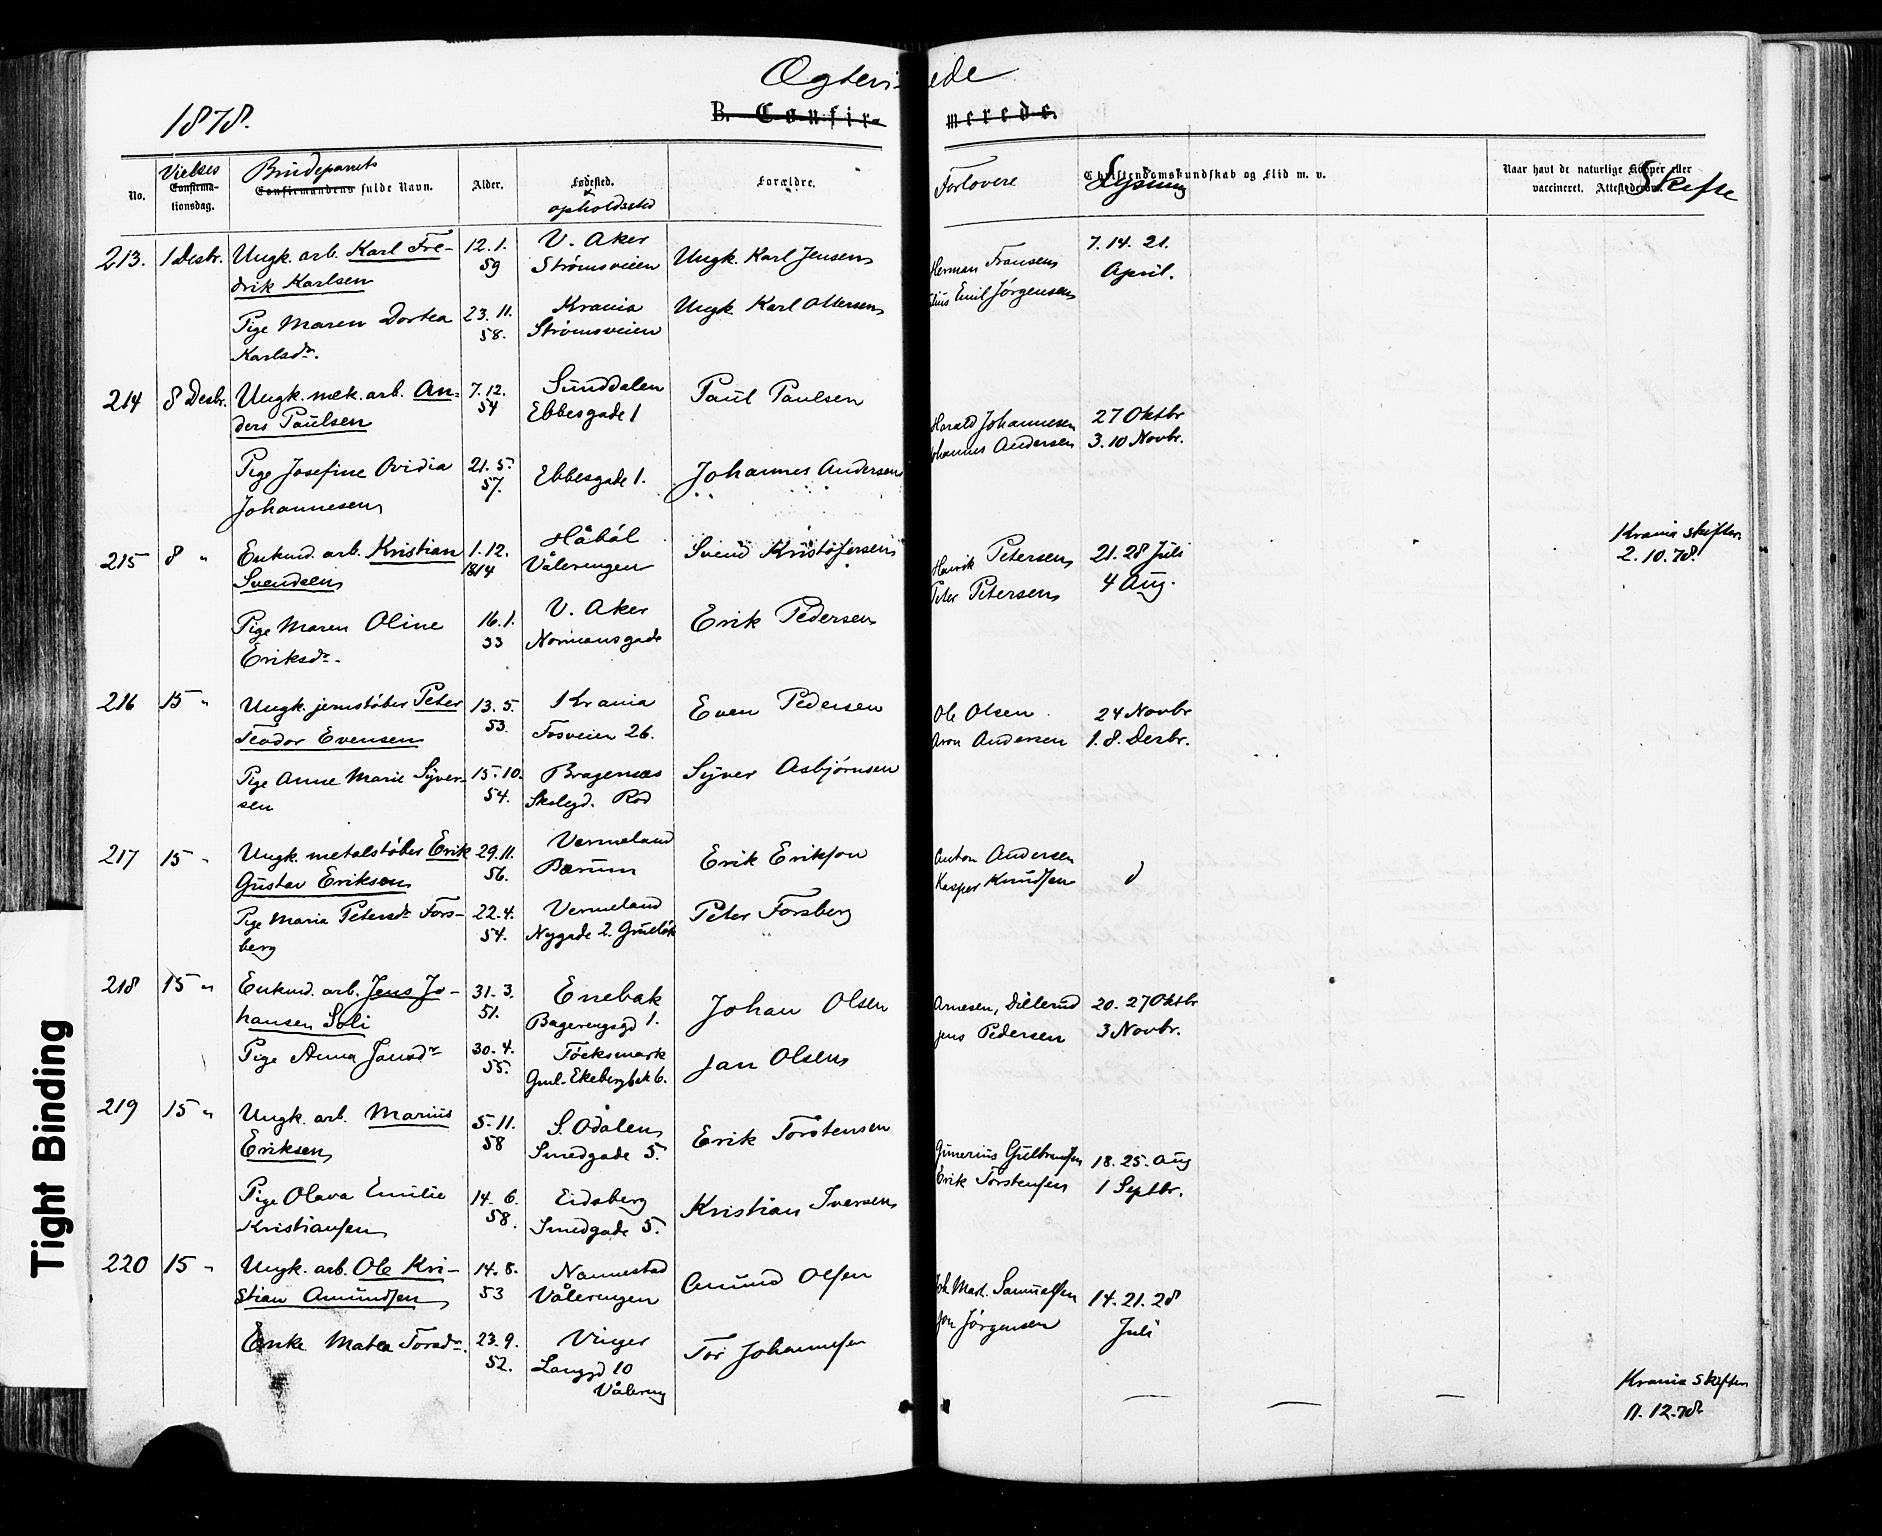 Ægtevi ede
1878.
B. Confir- merede.
No.
Vielses
Confirma-
tionsdag.
Brudeparrets
Confirmandens fulde Navn.
Alder.
Fødested.
opholdssted
Forældre.
Forlovere
Christendomskundskab og Flid m. v.
Lysning
Naar havt de naturlige Kopper eller
vaccineret. Attest derom.
Skifte
213. 1 Desbr. Ungk. arb. Karl Fre-
drik Karlsen
12.1.
59
V. Aker
Strømsveien
Ungk. Karl Jensen
Herman Fransen
Emil Jørgensen
7. 14. 21.
April.
Pige Maren Dortea
Karlsdr.
23. 11.
58.
Krania
Strømsveien
Ungk. Karl Ottersen
214 8 Desbr. Ungk. mek. arb. An-
ders Paulsen
7. 12.
54
Sunddalen
Ebbesgade 1
Paul Paulsen
Harald Johannesen
ohannes Andersen
27 Oktbr
3. 10 Novbr.
Pige Josefine Ovidia
Johannesen
21. 5.
57.
Ebbesgade 1.
Johannes Andersen
215 8 " Enkmd. arb. Kristian
Svendsen
1. 12.
1814
Håbøl
Vålerengen
Svend Kristofersen
Henrik Petersen
Peter Petersen
21. 28 Juli
4 Aug.
Krania skifter
2. 10. 78.
Pige Maren Oline
Eriksdr.
16. 1.
33
V. Aker
Normansgade
Erik Pedersen
216 15 " Ungk. jernstøber Peter
Teodor Evensen
13. 5.
53.
Krania
Fosveien 26.
Even Pedersen
Ole Olsen
Aron Andersen
24 Novbr
1. 8. Desbr.
Pige Anne Marie Syver-
sen
15. 10.
54.
Bragernæs
Skolegd. Rod
Syver Asbjørnsen
217 15 " Ungk. metalstøber Erik
Gustav Eriksen
29. 11.
56.
Vermeland
Bærum
Erik Erikson
Anton Andersen
Kasper Knudsen
Pige Maria Petersdr Fors-
berg
22. 4.
54.
Vermeland
Nygade 2.
Peter Forsberg
218 15 " Enkmd. arb. Jens Jo-
hansen Soli
31. 3.
51.
Enebak
Bagerengsgd 1.
Johan Olsen
Arnesen, Dillerud
jens Pedersen
20. 27 Oktbr
3 Novbr.
Pige Anna Jansdr
30. 4.
55.
Töcksmark
Gml. Ekebergbak 6.
Jan Olsen
219 15 " Ungk. arb. Marius
Eriksen
5. 11.
58
S. Odalen
Smedgade 5.
Erik Torstensen
Gunerius Gulbransen
Erik Torstensen
18. 25. Aug
1 Septbr.
Pige Olava Emilie
Kristiansen
14. 6.
58.
Eidsberg
Smedgade 5.
Kristian Iversen
220 15 " Ungk. arb. Ole Kri-
stian Amundsen
14. 8.
53
Nannestad
Vålerengen
Amund Olsen
Joh. Mart. Samuelsen
Jon Jørgensen
14. 21. 28
Juli
Enke Matea Torsdr.
23. 9.
52.
Vinger
Langgd 10
Vålereng
Tor Johannesen
Krania skifter
11. 12. 78.
Tight Binding